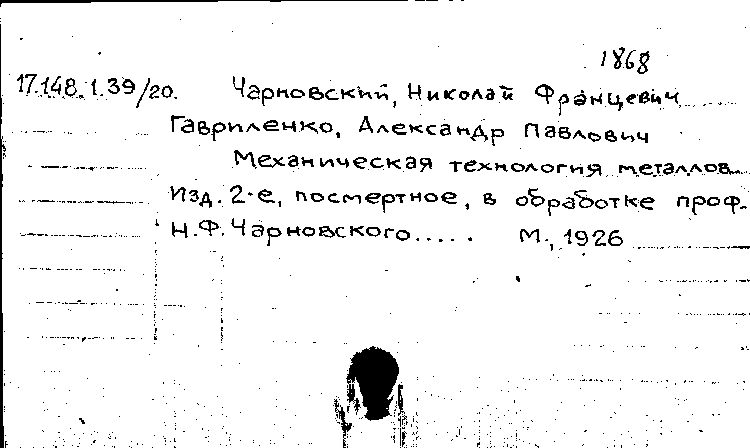 1868
17.148.1.39/20. Чарновский, Николай Францевич
Гавриленко, Александр Павлович
Механическая технология металлов.
Изд. 2-е, посмертное, в обработке проф.
Н.Ф. Чарновского..... М., 1926